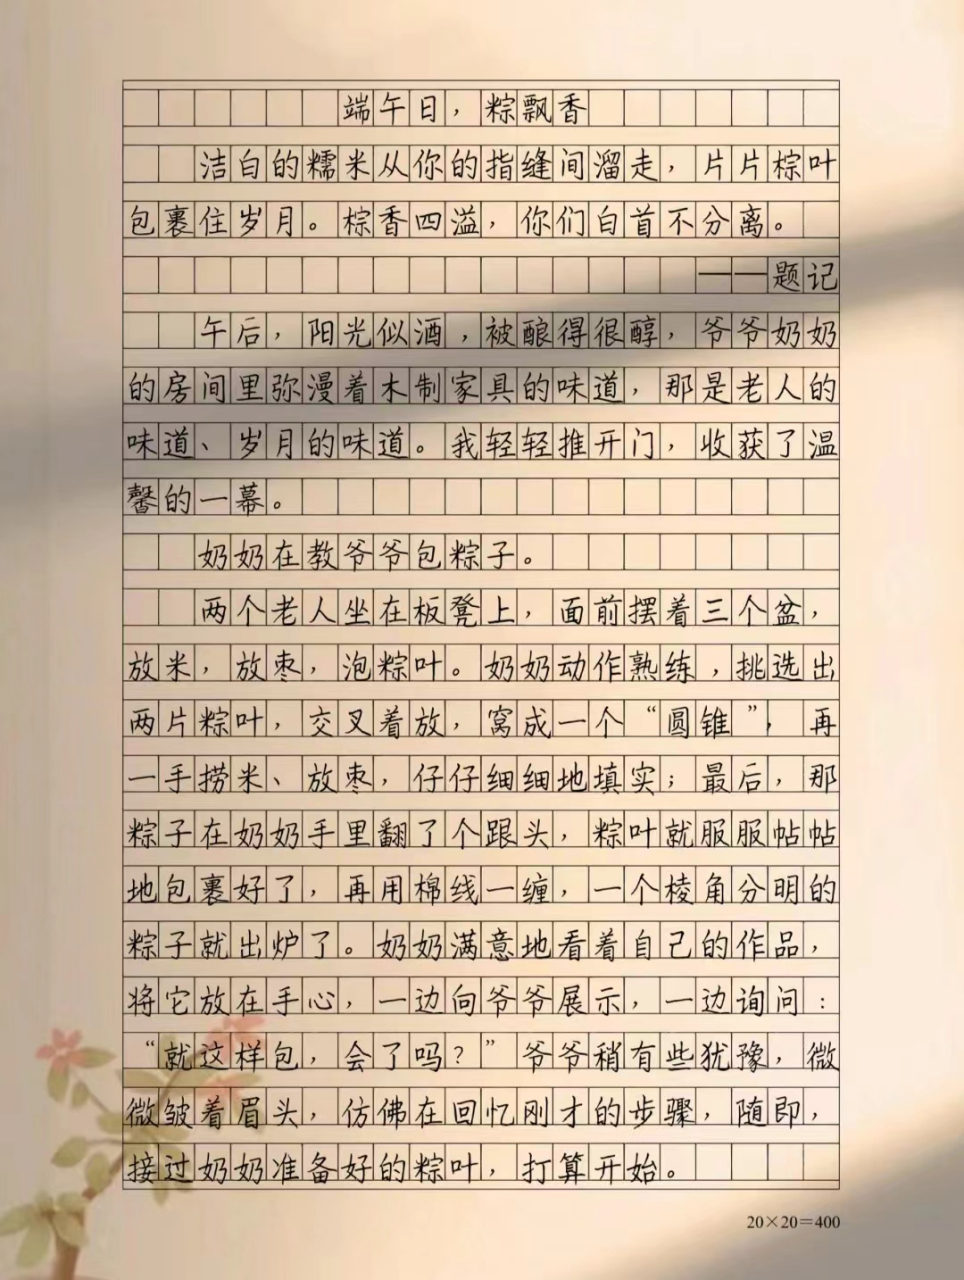 端午日，粽飘香
洁白的糯米从你的指缝间溜走，片片棕叶
包裹住岁月。棕香四溢，你们白首不分离。
——题记
午后，阳光似酒，被酿得很醇，爷爷奶奶
的房间里弥漫着木制家具的味道，那是老人的
味道、岁月的味道。我轻轻推开门，收获了温
馨的一幕。
奶奶在教爷爷包粽子。
两个老人坐在板凳上，面前摆着三个盆，
放米，放枣，泡粽叶。奶奶动作熟练，挑选出
两片粽叶，交叉着放，窝成一个“圆锥”，再
一手捞米、放枣，仔仔细细地填实；最后，那
粽子在奶奶手里翻了个跟头，粽叶就服服帖帖
地包裹好了，再用棉线一缠，一个棱角分明的
粽子就出炉了。奶奶满意地看着自己的作品，
将它放在手心，一边向爷爷展示，一边询问：
“就这样包，会了吗？”爷爷稍有些犹豫，微
微皱着眉头，仿佛在回忆刚才的步骤，随即，
接过奶奶准备好的粽叶，打算开始。
20×20=400